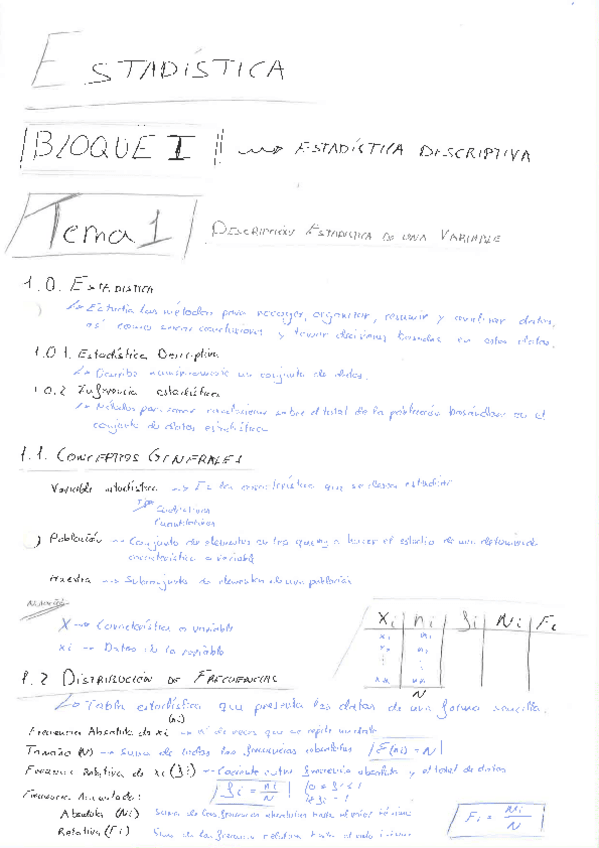 ESTADÍSTICA
BLOQUE I ~> ESTADÍSTICA DESCRIPTIVA
Tema 1 DESCRIPCIÓN ESTADÍSTICA DE UNA VARIABLE
1.0. ESTADISTICA
↳ Estudia los métodos para recoger, organizar, resumir y analizar datos,
así como sacar conclusiones y tomar decisiones basadas en estos datos.
1.0.1. Estadística Descriptiva
↳ Describe numéricamente un conjunto de datos.
1.0.2 Inferencia estadística
↳ Métodos para sacar conclusiones sobre el total de la población basándose en el
conjunto de datos estadística
1.1. CONCEPTOS GENERALES
Variable estadística → Es la característica que se desea estudiar
Tipos Cualitativas
Cuantitativas
Población → Conjunto de elementos en los que voy a hacer el estudio de una determinada
característica o variable
Muestra → Subconjunto de elementos de una población
Notación
X → Característica o variable
xi → Datos de la variable
Xi ni fi Ni Fi
x1 n1
N
1.2 DISTRIBUCIÓN DE FRECUENCIAS
↳ Tabla estadística que presenta los datos de una forma sencilla.
Frecuencia Absoluta de xi (ni) → nº de veces que se repite un dato
Tamaño (N) → Suma de todas las frecuencias absolutas Σ(ni) = N
Frecuencia Relativa de xi (fi) → Cociente entre frecuencia absoluta y el total de datos
fi = ni/N
Frecuencia Acumulada:
Absoluta (Ni) Suma de las frecuencias absolutas hasta el
Relativa (Fi) Suma de las frecuencias relativas hasta el
Fi = Ni/N